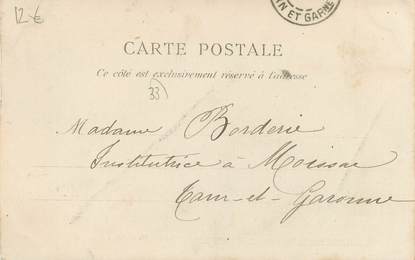 12 €
N ET GARNE
CARTE POSTALE
Ce côté est exclusivement réservé à l'adresse
33
Madame Borderie
Institutrice à Moissac
Tarn-et-Garonne